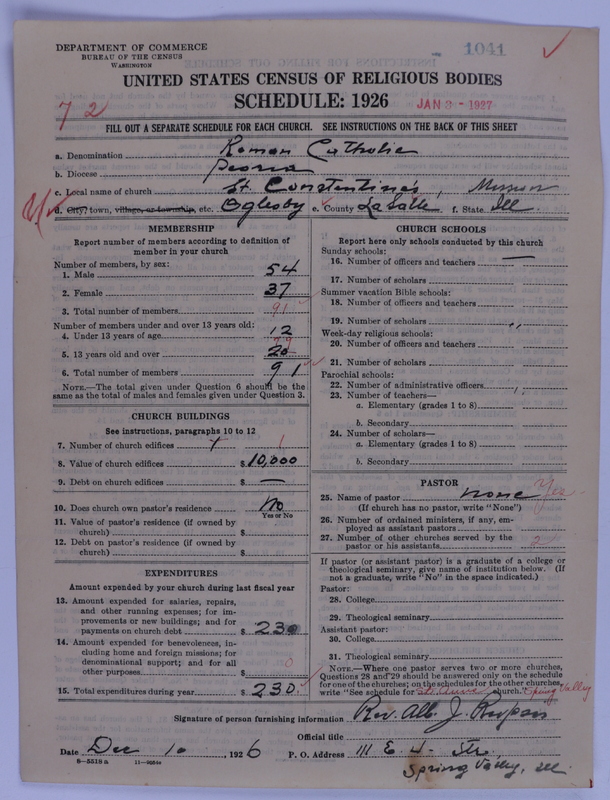 DEPARTMENT OF COMMERCE
BUREAU OF THE CENSUS
WASHINGTON
1041
UNITED STATES CENSUS OF RELIGIOUS BODIES
SCHEDULE: 1926
JAN 3 - 1927
72
FILL OUT A SEPARATE SCHEDULE FOR EACH CHURCH. SEE INSTRUCTIONS ON THE BACK OF THIS SHEET
a. Denomination Roman Catholic
b. Diocese Peoria
c. Local name of church St. Constantine's, Mission
d. City, town, village, or township, etc. Oglesby e. County LaSalle f. State Ill.
MEMBERSHIP
Report number of members according to definition of
member in your church
Number of members, by sex:
1. Male 54
2. Female 37
3. Total number of members 91
Number of members under and over 13 years old:
4. Under 13 years of age 12
79
5. 13 years old and over 20
6. Total number of members 91
NOTE.—The total given under Question 6 should be the
same as the total of males and females given under Question 3.
CHURCH BUILDINGS
See instructions, paragraphs 10 to 12
7. Number of church edifices 1
8. Value of church edifices $ 10,000
9. Debt on church edifices $ —
10. Does church own pastor's residence No
Yes or No
11. Value of pastor's residence (if owned by
church) $
12. Debt on pastor's residence (if owned by
church) $
EXPENDITURES
Amount expended by your church during last fiscal year
13. Amount expended for salaries, repairs,
and other running expenses; for im-
provements or new buildings; and for
payments on church debt $ 230
14. Amount expended for benevolences, in-
cluding home and foreign missions; for
denominational support; and for all
other purposes $ 0
15. Total expenditures during year $ 230.
CHURCH SCHOOLS
Report here only schools conducted by this church
Sunday schools:
16. Number of officers and teachers —
17. Number of scholars
Summer vacation Bible schools:
18. Number of officers and teachers
19. Number of scholars "
Week-day religious schools:
20. Number of officers and teachers
21. Number of scholars
Parochial schools:
22. Number of administrative officers "
23. Number of teachers—
a. Elementary (grades 1 to 8)
b. Secondary
24. Number of scholars—
a. Elementary (grades 1 to 8)
b. Secondary
PASTOR
25. Name of pastor none Yes
(If church has no pastor, write "None")
26. Number of ordained ministers, if any, em-
ployed as assistant pastors
27. Number of other churches served by the
pastor or his assistants 2
If pastor (or assistant pastor) is a graduate of a college or
theological seminary, give name of institution below. (If
not a graduate, write "No" in the space indicated.)
Pastor:
28. College
29. Theological seminary
Assistant pastor:
30. College
31. Theological seminary
NOTE.—Where one pastor serves two or more churches,
Questions 28 and 29 should be answered only on the schedule
for one of the churches; on the schedules for the other churches,
write "See schedule for St. Anne church." Spring Valley
Signature of person furnishing information Rev. Alb. J.
Official title
Date Dec 10, 1926 P. O. Address 111 E. 4. Str.
Spring Valley, Ill.
8—5518 a 11—9664